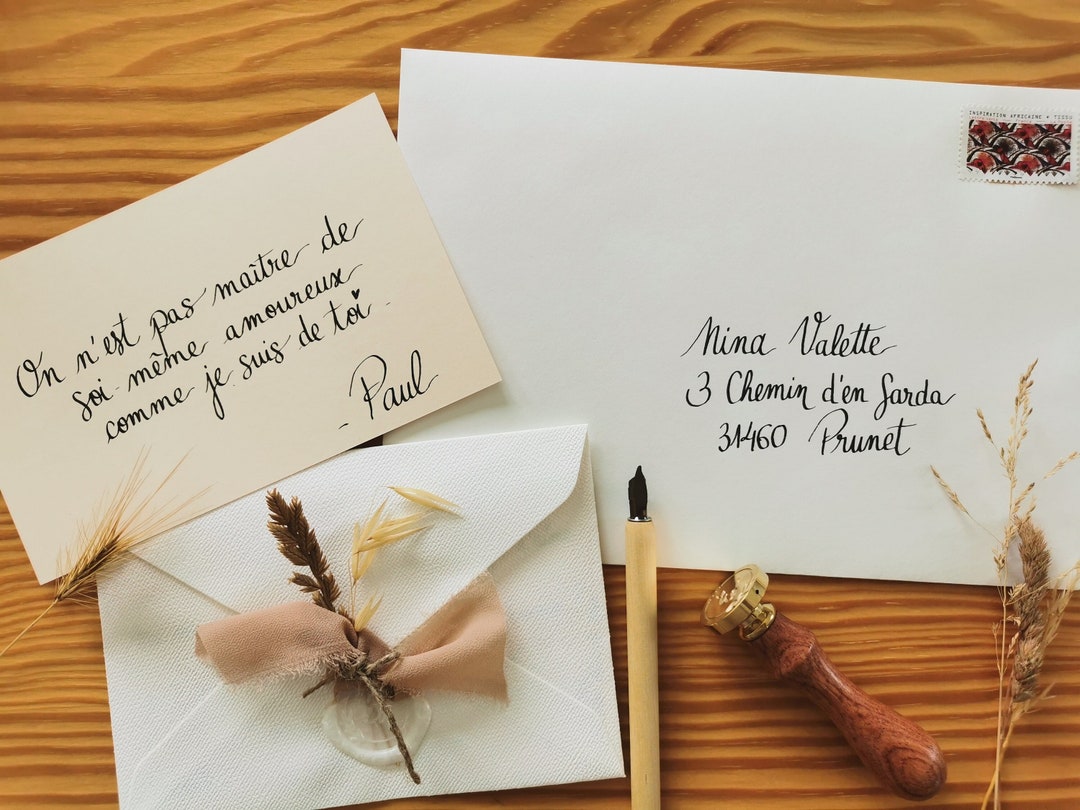 On n'est pas maître de
soi-même amoureux
comme je suis de toi.
- Paul -
INSPIRATION AFRICAINE • TISSU
Nina Valette
3 Chemin d'en Sarda
31460 Prunet